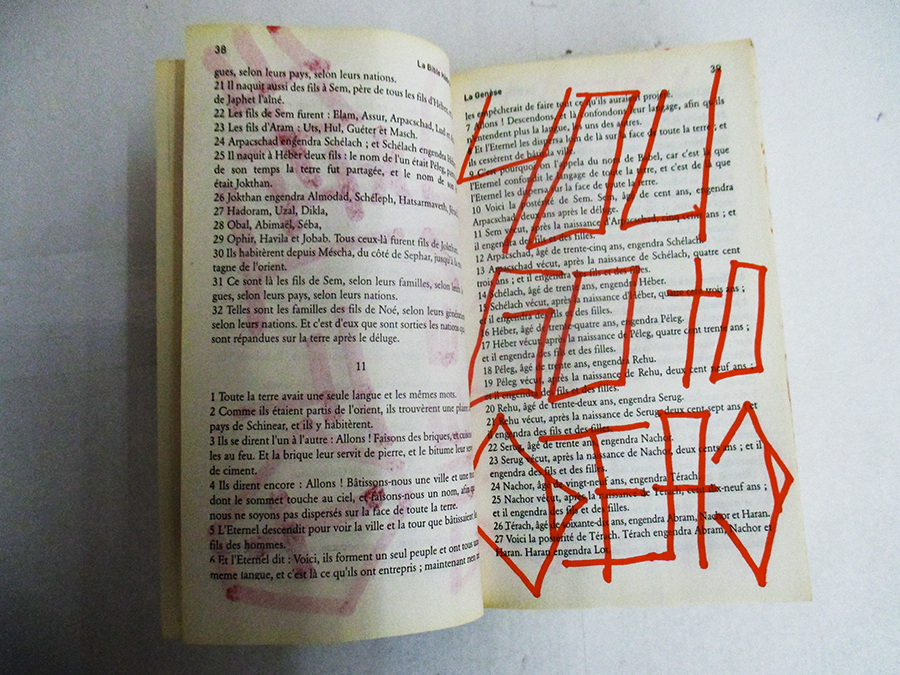 38
La Bible
gues, selon leurs pays, selon leurs nations.
21 Il naquit aussi des fils à Sem, père de tous les fils d'Héber,
de Japhet l'aîné.
22 Les fils de Sem furent : Elam, Assur, Arpacschad, Lud et
23 Les fils d'Aram : Uts, Hul, Guéter et Masch.
24 Arpacschad engendra Schélach ; et Schélach engendra Héber.
25 Il naquit à Héber deux fils : le nom de l'un était Péleg, parce
de son temps la terre fut partagée, et le nom de son
était Jokthan.
26 Jokthan engendra Almodad, Schéleph, Hatsarmaveth, Jérach,
27 Hadoram, Uzal, Dikla,
28 Obal, Abimaël, Séba,
29 Ophir, Havila et Jobab. Tous ceux-là furent fils de Jokthan.
30 Ils habitèrent depuis Méscha, du côté de Sephar, jusqu'à la
tagne de l'orient.
31 Ce sont là les fils de Sem, selon leurs familles, selon leurs
gues, selon leurs pays, selon leurs nations.
32 Telles sont les familles des fils de Noé, selon leurs générations,
selon leurs nations. Et c'est d'eux que sont sorties les nations qui
sont répandues sur la terre après le déluge.
11
1 Toute la terre avait une seule langue et les mêmes mots.
2 Comme ils étaient partis de l'orient, ils trouvèrent une plaine
pays de Schinear, et ils y habitèrent.
3 Ils se dirent l'un à l'autre : Allons ! Faisons des briques, et cuisons
les au feu. Et la brique leur servit de pierre, et le bitume leur
de ciment.
4 Ils dirent encore : Allons ! Bâtissons-nous une ville et une
dont le sommet touche au ciel, et faisons-nous un nom, afin que
nous ne soyons pas dispersés sur la face de toute la terre.
5 L'Eternel descendit pour voir la ville et la tour que bâtissaient
fils des hommes.
6 Et l'Eternel dit : Voici, ils forment un seul peuple et ont tous une
meme langue, et c'est là ce qu'ils ont entrepris ; maintenant rien ne
39
La Genèse
les empêcherait de faire tout ce qu'ils auraient projeté.
7 Allons ! Descendons, et là confondons leur langage, afin qu'ils
n'entendent plus la langue, les uns des autres.
Et l'Eternel les dispersa loin de là sur la face de toute la terre ; et
ils cessèrent de bâtir la ville.
9 C'est pourquoi on l'appela du nom de Babel, car c'est là que
l'Eternel confondit le langage de toute la terre, et c'est de là que
l'Eternel les dispersa sur la face de toute la terre.
10 Voici la postérité de Sem. Sem, âgé de cent ans, engendra
Arpacschad, deux ans après le déluge.
11 Sem vécut, après la naissance d'Arpacschad, cinq cents ans ; et
il engendra des fils et des filles.
12 Arpacschad, âgé de trente-cinq ans, engendra Schélach.
13 Arpacschad vécut, après la naissance de Schélach, quatre cent
trois ans ; et il engendra des fils et des filles.
14 Schélach, âgé de trente ans, engendra Héber.
15 Schélach vécut, après la naissance d'Héber, quatre cent trois ans ;
et il engendra des fils et des filles.
16 Héber, âgé de trente-quatre ans, engendra Péleg.
17 Héber vécut, après la naissance de Péleg, quatre cent trente ans ;
et il engendra des fils et des filles.
18 Péleg, âgé de trente ans, engendra Rehu.
19 Péleg vécut, après la naissance de Rehu, deux cent neuf ans ;
il engendra des fils et des filles.
20 Rehu, âgé de trente-deux ans, engendra Serug.
21 Rehu vécut, après la naissance de Serug, deux cent sept ans ; et
engendra des fils et des filles.
22 Serug, âgé de trente ans, engendra Nachor.
23 Serug vécut, après la naissance de Nachor, deux cents ans ; et il
engendra des fils et des filles.
24 Nachor, âgé de vingt-neuf ans, engendra Térach.
25 Nachor vécut, après la naissance de Térach, cent dix-neuf ans ;
et il engendra des fils et des filles.
26 Térach, âgé de soixante-dix ans, engendra Abram, Nachor et Haran.
27 Voici la postérité de Térach. Térach engendra Abram, Nachor et
Haran. Haran engendra Lot.
404
GO to